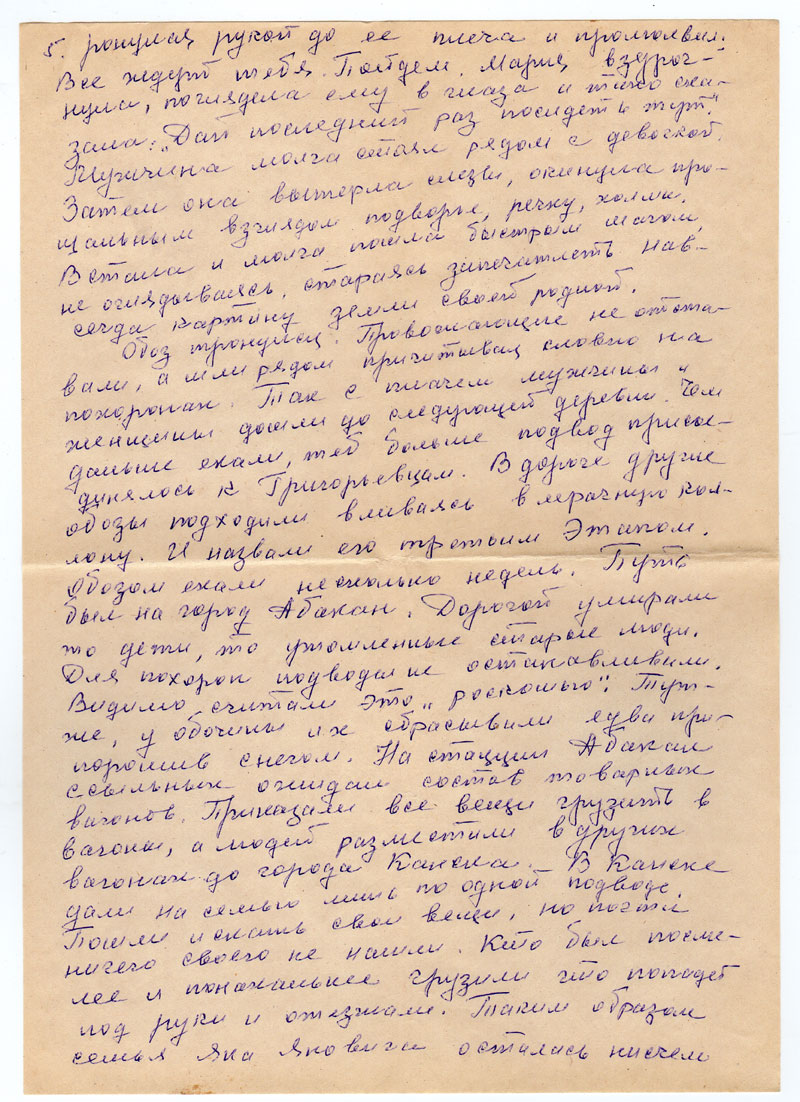 5. ронулся рукой до ее плеча и промолвил.
Все ждут тебя. Пойдем. Мария вздрог-
нула, поглядела ему в глаза и тихо ска-
зала: „Дай последний раз посидеть тут."
Мужчина молча стоял рядом с девочкой.
Затем она вытерла слезы, окинула про-
щальным взглядом подворье, речку, холмы.
Встала и молча пошла быстрым шагом,
не оглядываясь, стараясь запечатлеть нав-
сегда картину земли своей родной.
Обоз тронулся. Провожающие не отста-
вали, а шли рядом причитывая словно на
похоронах. Так с плачем мужчины и
женщины дошли до следующей деревни. Чем
дальше ехали, тем больше подвод присое-
динялось к Григорьевцам. В дороге другие
обозы подходили вливаясь в мрачную кол-
лону. И назвали его третьим Этапом.
Обозом ехали несколько недель. Путь
был на город Абакан. Дорогой умирали
то дети, то утомленные старые люди.
Для похорон подводы не останавливили.
Видимо считали это „роскошью". Тут-
же, у обочины их сбрасывили едва при-
порошив снегом. На станции Абакан
ссыльных ожидал состав товарных
вагонов. Приказали все вещи грузить в
вагоны, а людей разместили в других
вагонах до города Канска. В Канске
дали на семью лишь по одной подводе.
Пошли искать свои вещи, но почти
ничего своего не нашли. Кто был посме-
лее и понахальнее грузили что попадет
под руки и отезжали. Таким образом
семья Яна Яновича осталась нисчем